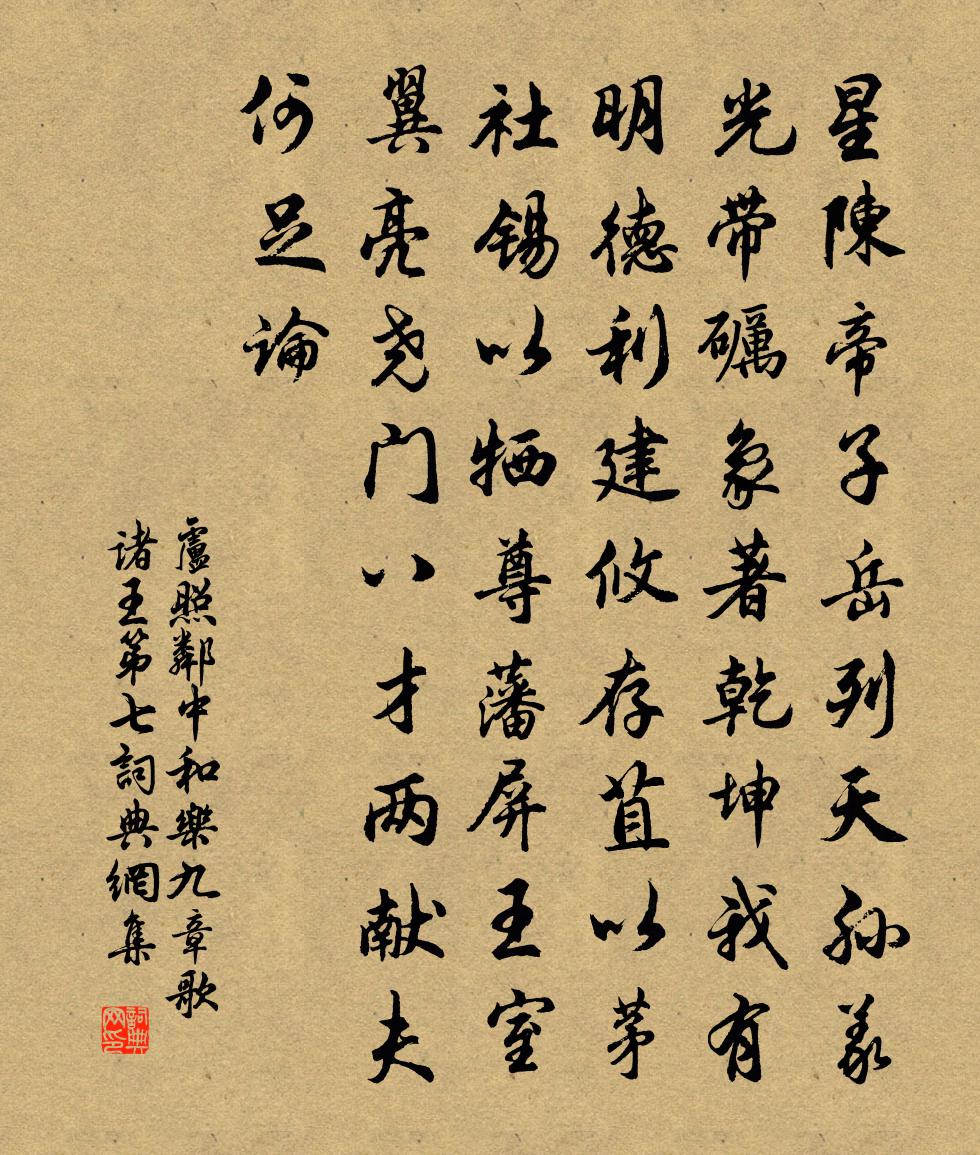 星陳帝子岳列天孙義
光带礪象著乾坤我有
明德利建攸存苴以茅
社锡以牺尊藩屏王室
翼亮尧门八才两献夫
何足论
盧照鄰中和樂九章歌
诸王第七詞典網集
詞典网印